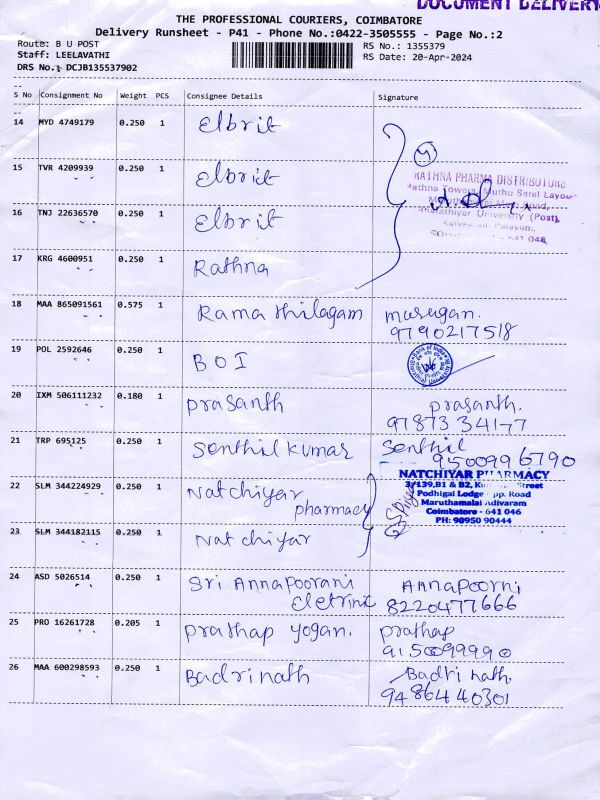 DOCUMENT DELIVERY
THE PROFESSIONAL COURIERS, COIMBATORE
Delivery Runsheet - P41 - Phone No.:0422-3505555 - Page No.:2
Route: B U POST
RS No.: 1355379
Staff: LEELAVATHI
RS Date: 20-Apr-2024
DRS No.: DCJB135537902
S No Consignment No Weight PCS Consignee Details Signature
14 MYD 4749179 0.250 1 Elbrit
15 TVR 4209939 0.250 1 Elbrit
RATHNA PHARMA DISTRIBUTORS
Rathna Towers, Muthu Sarel Layout
Road,
Bharathiyar University (Post),
641 046
16 TNJ 22636570 0.250 1 Elbrit
17 KRG 4600951 0.250 1 Rathna
18 MAA 865091561 0.575 1 Rama thilagam murugan.
9790217518
19 POL 2592646 0.250 1 BOI
Bank of India
20 IXM 506111232 0.180 1 prasanth prasanth.
97873 34177
21 TRP 695125 0.250 1 Senthil kumar Senthil
9500996790
NATCHIYAR PHARMACY
3/139,B1 & B2, Street
Podhigai Lodge Opp. Road
Maruthamalai Adivaram
Coimbatore - 641 046
PH: 90950 90444
22 SLM 344224929 0.250 1 Natchiyar
pharmacy
23 SLM 344182115 0.250 1 Natchiyar
24 ASD 5026514 0.250 1 Sri Annapoorani Annapoorni
Eletrinic 8220477666
25 PRO 16261728 0.205 1 prathap yogan. prathap
9150099990
26 MAA 600298593 0.250 1 Badrinath Badri nath.
9486440301